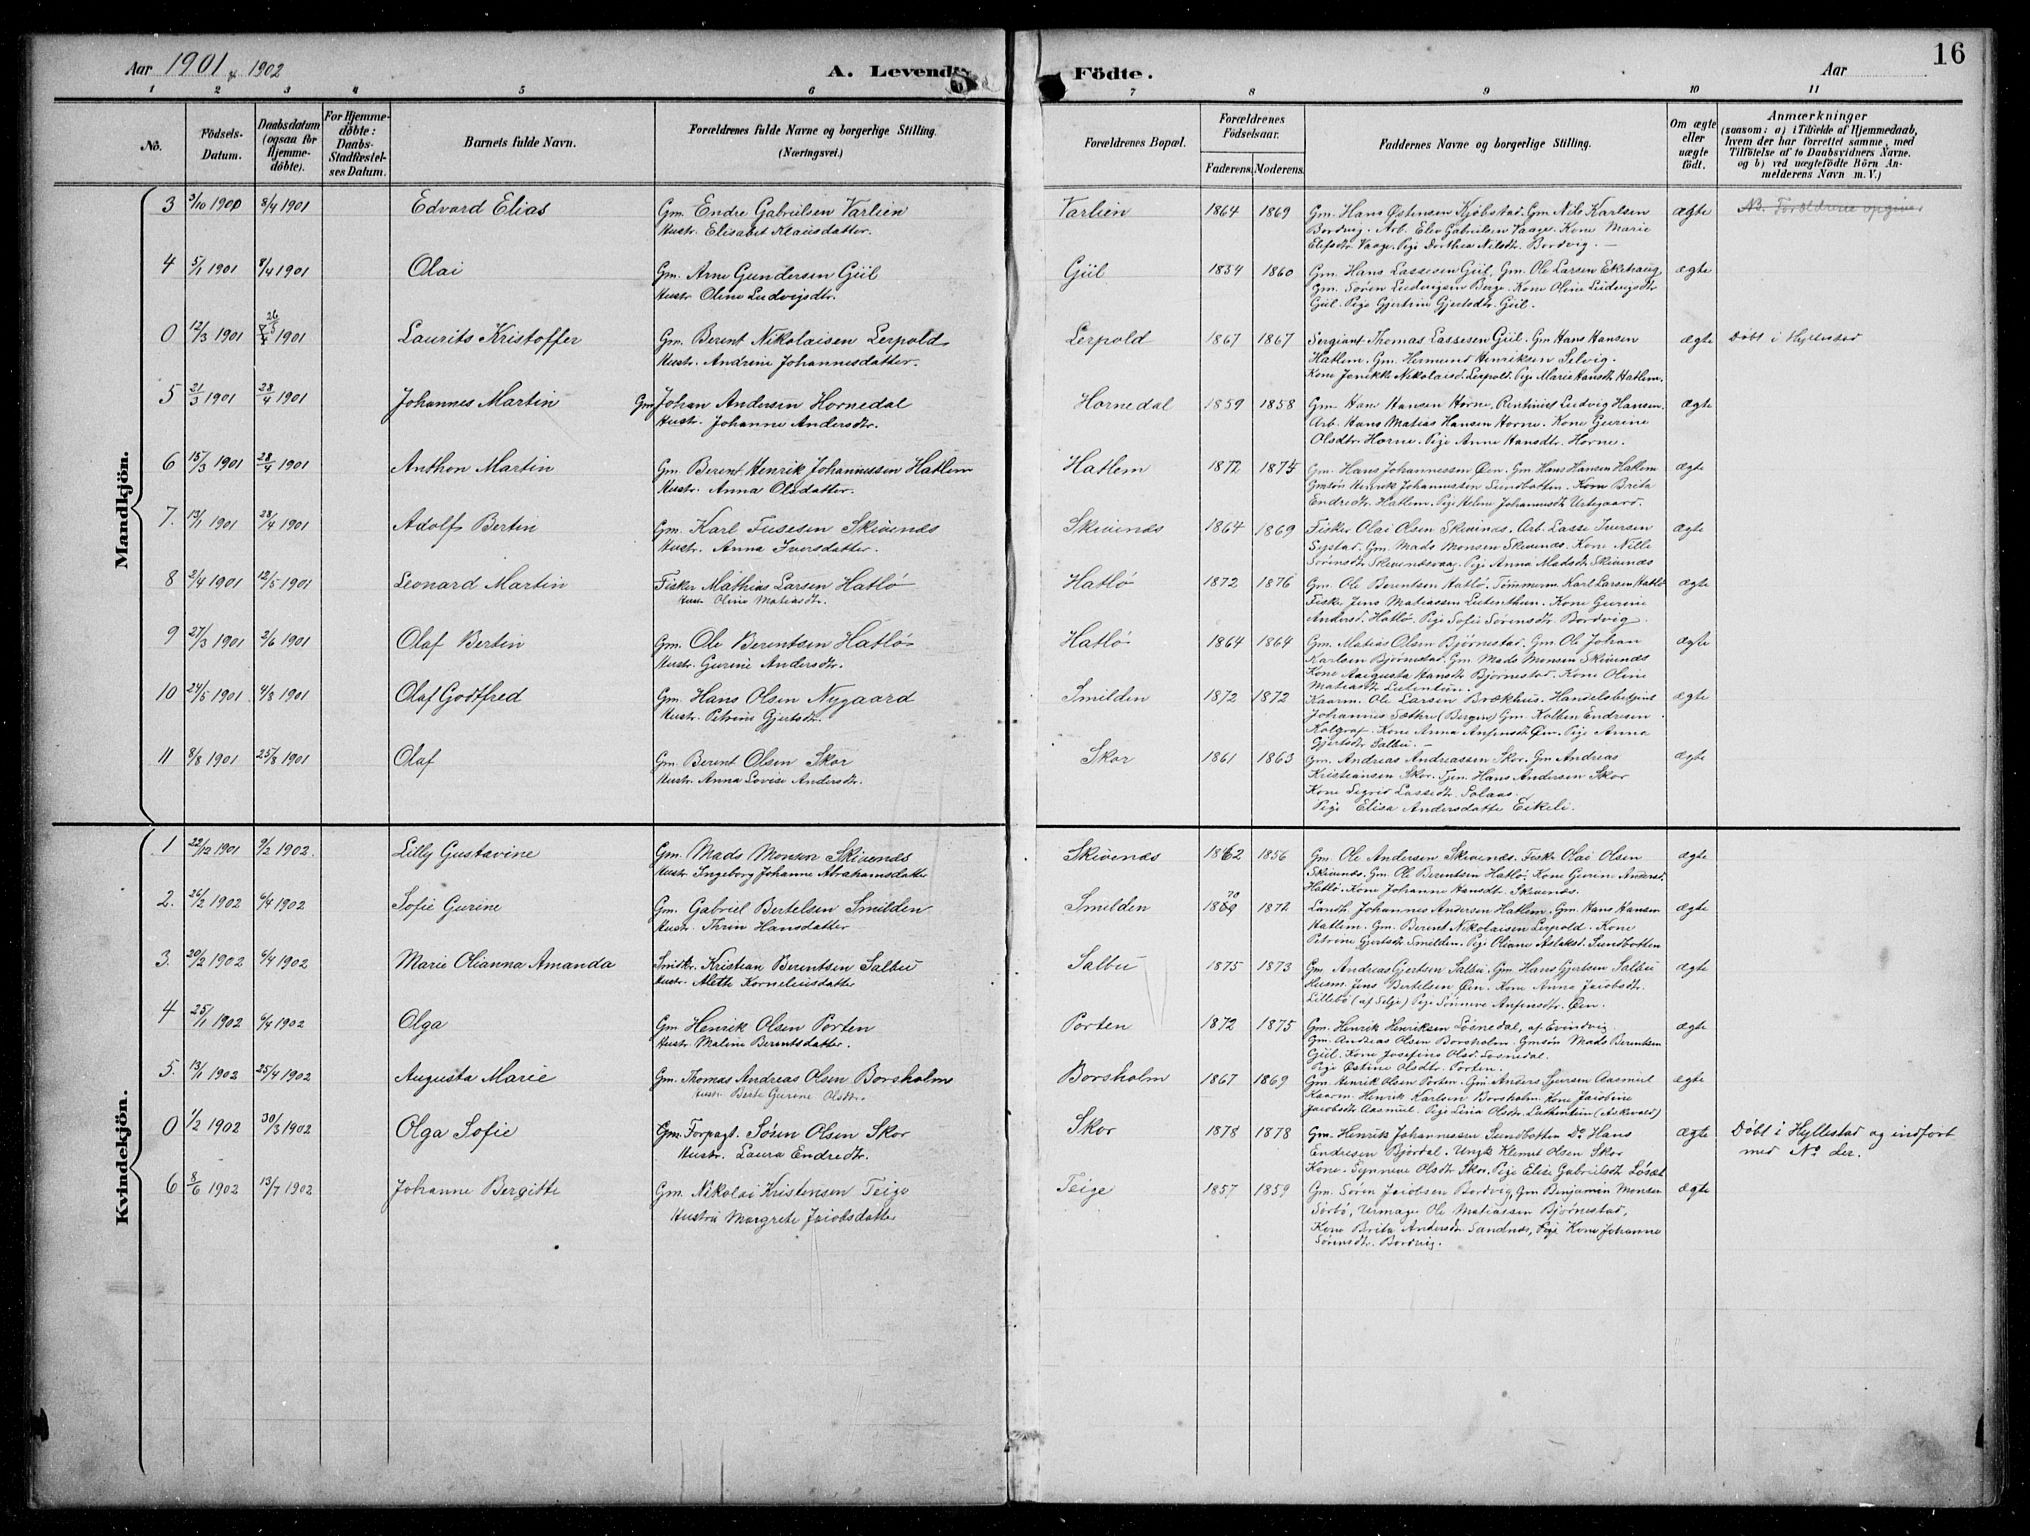 Aar 1901 & 1902
A. Levende Födte.
Aar
16
1 2 3 4 5 6 7 8 9 10 11
No.
Födsels-Datum.
Daabsdatum (ogsaa for Hjemmedöbte).
For Hjemmedöbte: Daabs-Stadfæstelses Datum.
Barnets fulde Navn.
Forældrenes fulde Navne og borgerlige Stilling. (Næringsvei.)
Forældrenes Bopæl.
Forældrenes Födselsaar.
Faderens. Moderens.
Faddernes Navne og borgerlige Stilling.
Om ægte eller uægte födt.
Anmærkninger
(saasom: a) i Tilfælde af Hjemmedaab, hvem der har forrettet samme, med Tilföielse af to Daabsvidners Navne. og b) ved uægtefödte Börn Anmelderens Navn m. V.)
Mandkjön.
3 3/10 1900 8/4 1901 Edvard Elias Gm. Endre Gabrielsen Varlien
Hustr. Elisabet Klausdatter
Varlien 1864 1869 Gm. Hans Østensen Kjøbstad. Gm Nils Karlsen
Bordvig. Arb. Elev Gabrielsen Vaage. Kone Marie
Elifsdtr Vaage. Pige Dorthea Nilsdtr. Bordvig. ægte NB. Forældrene opgiver
4 5/1 1901 8/4 1901 Olai Gm. Arne Gundersen Giil
Hustr. Oline Ludvigsdtr.
Giil 1834 1860 Gm. Hans Lassesen Giil. Gm. Ole Larsen Ekehaug
Gm. Søren Ludvigsen Berge. Kone Oline Ludvigsdtr
Giil. Pige Gjertine Gjertsdtr. Giil. ægte
0 12/3 1901 26/5 1901 Laurits Kristoffer Gm. Berent Nikolaisen Lerpold
Hustr. Andrine Johannesdatter.
Lerpold 1867 1867 Sergiant Thomas Lassesen Giil. Gm Hans Hansen
Hatlem. Gm. Hermund Henriksen Selvig.
Kone Jenikke Nikolaisd. Lerpold. Pige Marie Hansdtr Hatlem. ægte Døbt i Hyllestad
5 21/3 1901 28/4 1901 Johannes Martin Gm Johan Andersen Hornedal
Hustr. Johanne Andersdtr.
Hornedal 1859 1858 Gm. Hans Hansen Horne. Ludvig Hansen.
Arb. Hans Matias Hansen Horne. Kone Gurine
Olsdtr Horne. Pige Anne Hansdtr. Horne. ægte
6 15/3 1901 28/4 1901 Anthon Martin Gm Berent Henrik Johannessen Hatlem
Hustr. Anna Olsdatter.
Hatlem 1872 1875 Gm. Hans Johannessen Øen. Gm Hans Hansen Hatlem
Gmsøn Henrik Johannessen Sundbotten. Kone Brita
Endredtr. Hatlem. Pige Helene Johannesdtr ægte
7. 13/1 1901 28/4 1901 Adolf Bertin Gm. Karl Skivenæs
Hustr. Anna Iversdatter.
Skivenæs 1864 1869 Fisker Olai Olsen Skivenæs. Arb. Lasse Iversen
Systad. Gm. Mads Monsen Skivenæs. Kone Nille
Sørensdtr Skivenæsvaag. Pige Anna Madsdtr Skivenæs ægte
8 2/4 1901 12/5 1901 Leonard Martin Fisker Mathias Larsen Hatlø
Hustr. Oline Matiasdtr.
Hatlø 1872 1876 Gm. Ole Berentsen Hatlø. Tømmerm. Karl Larsen Hatlø
Fisker Jens Matiassen Lutentun. Kone Gurine
Andersd. Hatlø. Pige Sofie Sørensdtr. Bordvig. ægte
9 27/3 1901 2/6 1901 Olaf Bertin Gm. Ole Berentsen Hatlø
Hustr. Gurine Andersdtr.
Hatlø 1864 1864 Gm. Matias Olsen Bjørnestad. Gm. Ole Johan
Karlsen Bjørnestad. Gm. Mads Monsen Skivenæs
Kone Augusta Hansdtr Bjørnestad. Kone Oline
Matiasdtr Lutentun. ægte
10 24/5 1901 4/8 1901 Olaf Godtfred Gm. Hans Olsen Nygaard
Hustr. Petrine Gjertsdtr.
Smilden 1872 1872 Kaarm. Ole Larsen Brækhus. Handelsbetjent
Johannes Sæthre (Bergen) Gm. Kolben Endresen
Kolgrof. Kone Anna Anfensdtr Øen. Pige Anna
Gjertsdtr Salbu. ægte
11 8/8 1901 25/8 1901 Olaf Gm. Berent Olsen Skor
Hustr. Anna Lovise Andersdtr.
Skor 1861 1863 Gm. Andreas Andreassen Skor. Gm Andreas
Kristiansen Skor. Tjen. Hans Andersen Skor
Kone Sigrid Lassedtr. Solaas.
Pige Elisa Andersdatte Eikeli. ægte
Kvindekjön.
1 22/12 1901 9/2 1902. Lilly Gustavine Gm. Mads Monsen Skivenæs
Hustr. Ingeborg Johanne Abrahamsdatter
Skivenæs 1862 1856 Gm. Ole Andersen Skivenæs. Fisker Olai Olsen
Skivenæs. Gm. Ole Berentsen Hatlø. Kone Gurine Andersd.
Hatlø. Kone Johanne Hansdtr. Skivenæs. ægte
2. 26/2 1902 6/4 1902 Sofie Gurine Gm. Gabriel Bertelsen Smilden
Hustr. Thrin Hansdatter
Smilden 1870 1872 Landh. Johannes Andersen Hatlem. Gm. Hans Hansen
Hatlem. Gm. Berent Nikolaisen Lerpold. Kone
Petrine Gjertsdtr Smilden. Pige Oliane Aslaksd. Sundbotten ægte
3. 20/2 1902 6/4 1902 Marie Olianna Amanda Smedkr. Kristian Berentsen Salbu
Hustr. Alette Korneliusdatter
Salbu 1875 1873 Gm. Andreas Gjertsen Salbu. Gm. Hans Gjertsen Salbu
Husm. Jens Bertelsen Øen. Kone Anna Jacobsdtr.
Lillebø (af Selje) Pige Sønneve Anfensdtr. Øen. ægte
4 25/1 1902 6/4 1902 Olga Gm Henrik Olsen Porten
Hustr. Maline Berentsdatter.
Porten 1872 1875 Gm. Henrik Henriksen Løsnedal, af Evindvig
Gm. Andreas Olsen Borsholm. Gmsøn Mads Berentsen
Giil. Kone Josefine Olsd. Løsnedal.
Pige Østine Olsdtr. Porten. ægte
5. 13/1 1902 25/4 1902 Augusta Marie Gm. Thomas Andreas Olsen Borsholm
Hustr. Berte Gurine Olsdtr.
Borsholm 1867 1869 Gm. Henrik Olsen Porten. Gm Anders Sjursen Aasmul
Kaarm. Henrik Karlsen Borsholm. Kone Jacobine
Jacobsdtr Aasmul. Pige Lina Olsdtr. Lutentun (Askvold) ægte
0 1/2 1902 30/3 1902 Olga Sofie Gm. Forpagt. Søren Olsen Skor
Hustr. Laura Endredtr.
Skor 1878 1878 Gm. Henrik Johannessen Sundbotten Do Hans
Endresen Bjørdal. Ungk Klemet Olsen Skor
Kone Synneve Olsdtr Skor. Pige Elise Gabrielsdtr Løsæt ægte Døbt i Hyllestad og indført
med No der.
6 8/6 1902 13/7 1902 Johanne Bergitte Gm. Nikolai Kristensen Teige
Hustru Margrete Jacobsdatter
Teige 1857 1859 Gm. Søren Jacobsen Bordvig, Gm Benjamin Monsen
Sørbø, Ole Matiassen Bjørnestad,
Kone Brita Andersdtr Sandnes, Pige Kone Johanne
Sørensdtr. Bordvig. ægte